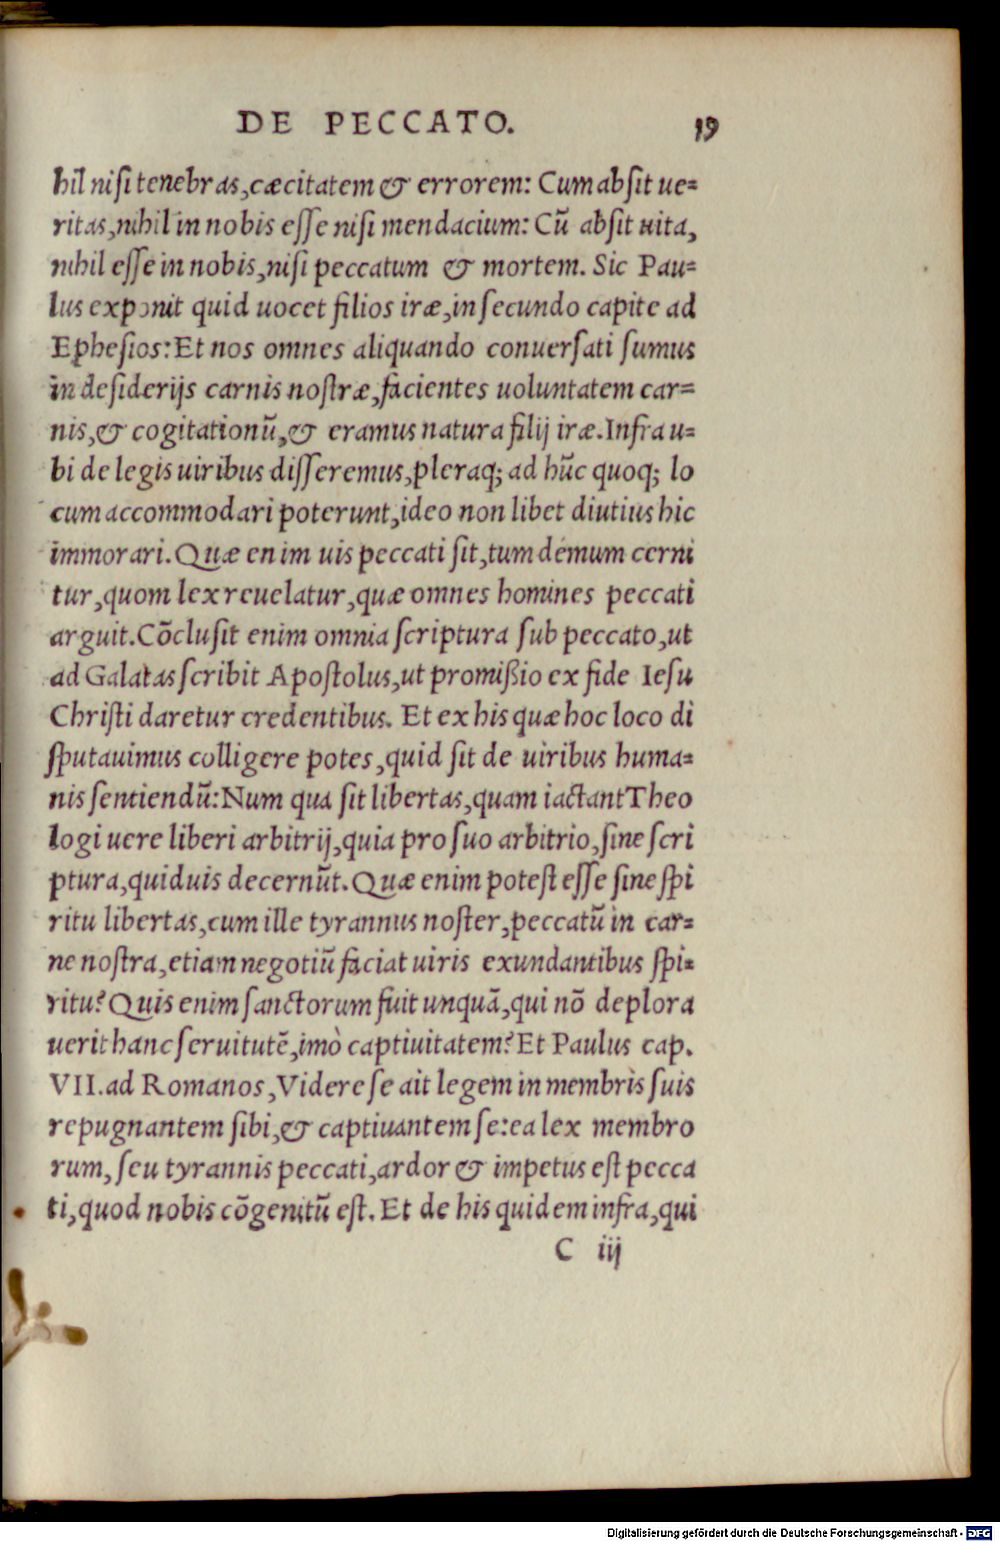 DE PECCATO. 19
hil nisi tenebras, cæcitatem & errorem: Cum absit ue=
ritas, nihil in nobis esse nisi mendacium: Cū absit uita,
nihil esse in nobis, nisi peccatum & mortem. Sic Pau=
lus exponit quid uocet filios iræ, in secundo capite ad
Ephesios: Et nos omnes aliquando conuersati sumus
in desiderijs carnis nostræ, facientes uoluntatem car=
nis, & cogitationū, & eramus natura filij iræ. Infra u=
bi de legis uiribus disseremus, pleraq; ad hūc quoq; lo
cum accommodari poterunt, ideo non libet diutius hic
immorari. Quæ enim uis peccati sit, tum demum cerni
tur, quom lex reuelatur, quæ omnes homines peccati
arguit. Cōclusit enim omnia scriptura sub peccato, ut
ad Galatas scribit Apostolus, ut promißio ex fide Iesu
Christi daretur credentibus. Et ex his quæ hoc loco di
sputauimus colligere potes, quid sit de uiribus huma=
nis sentiendū: Num qua sit libertas, quam iactant Theo
logi uere liberi arbitrij, quia pro suo arbitrio, sine scri
ptura, quiduis decernūt. Quæ enim potest esse sine spi
ritu libertas, cum ille tyrannus noster, peccatū in car=
ne nostra, etiam negotiū faciat uiris exundantibus spi=
ritu? Quis enim sanctorum fuit unquā, qui nō deplora
uerit hanc seruitutē, imò captiuitatem? Et Paulus cap.
VII. ad Romanos, Videre se ait legem in membris suis
repugnantem sibi, & captiuantem se: ea lex membro
rum, seu tyrannis peccati, ardor & impetus est pecca
ti, quod nobis cōgenitū est. Et de his quidem infra, qui
C iij
Digitalisierung gefördert durch die Deutsche Forschungsgemeinschaft - DFG